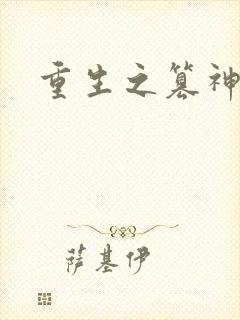 重生之篡神
萨基伊